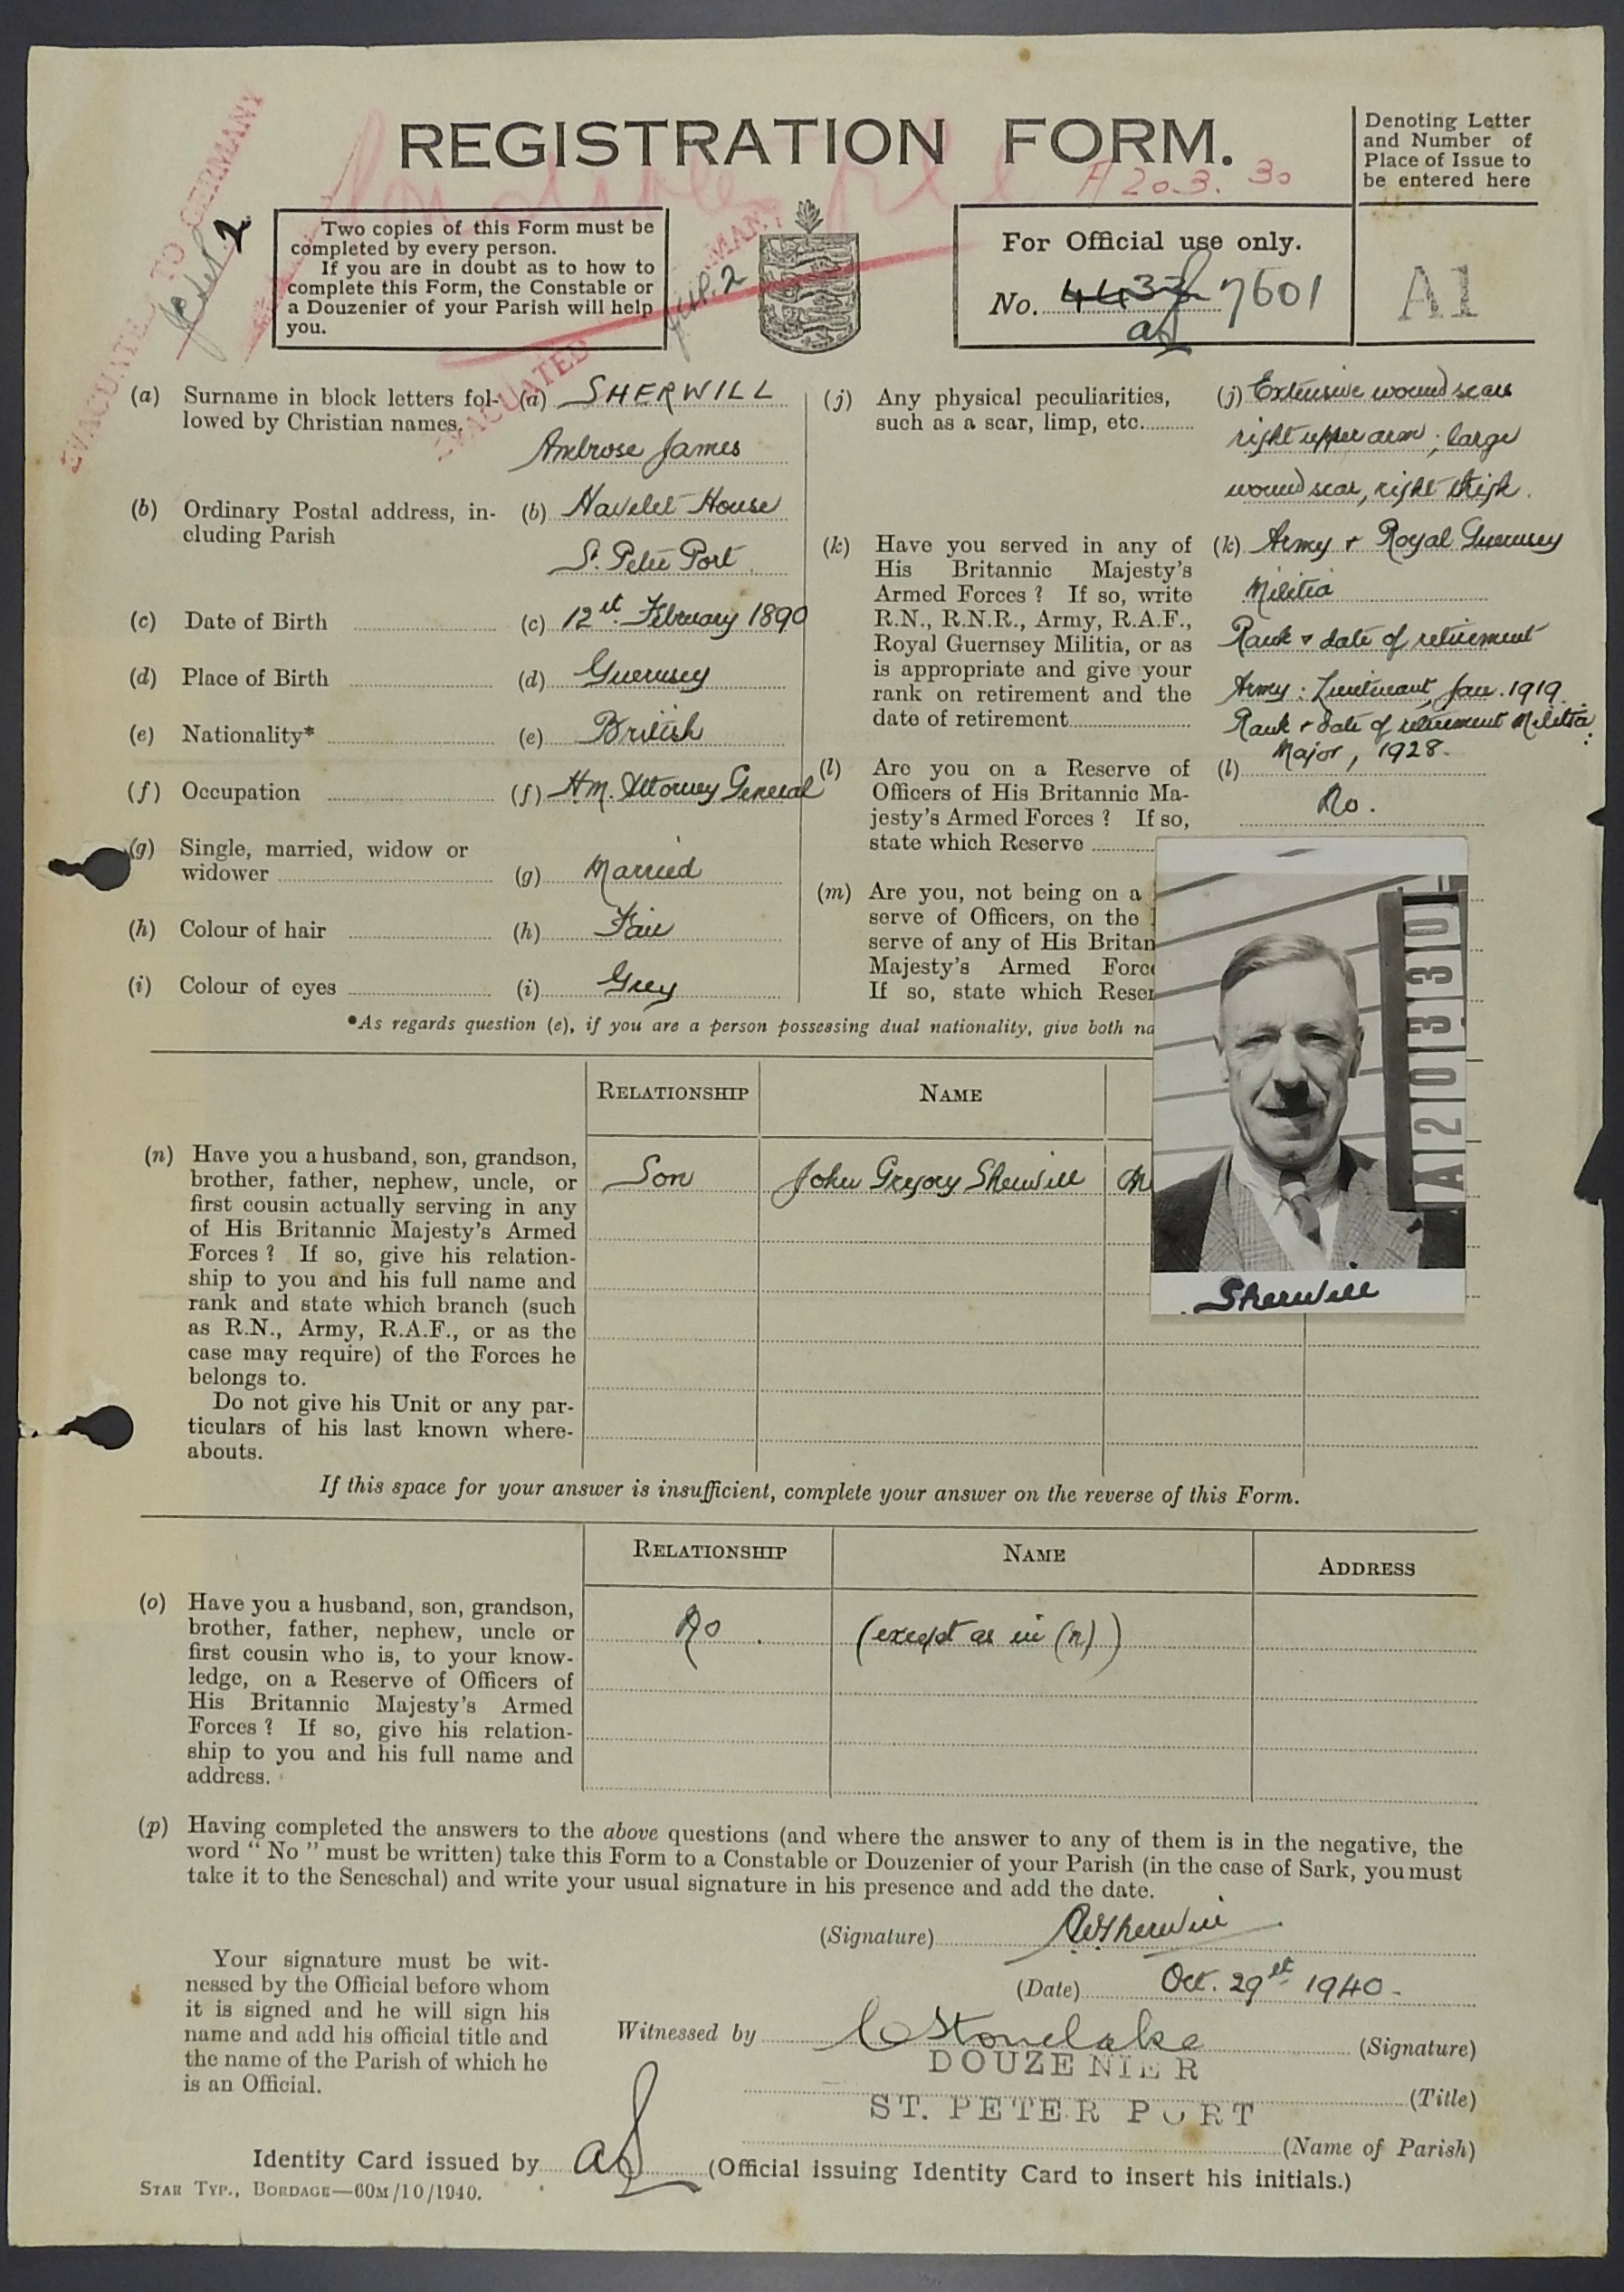 REGISTRATION FORM.
A 20.3.30
Denoting Letter
and Number of
Place of Issue to
be entered here
A1
EVACUATED TO GERMANY
EVACUATED
Two copies of this Form must be
completed by every person.
If you are in doubt as to how to
complete this Form, the Constable or
a Douzenier of your Parish will help
you.
For Official use only.
No. 7601
(a) Surname in block letters fol-
lowed by Christian names.
(a) SHERWILL
Ambrose James
(b) Ordinary Postal address, in-
cluding Parish
(b) Havelet House
St. Peter Port.
(c) Date of Birth (c) 12th February 1890
(d) Place of Birth (d) Guernsey
(e) Nationality* (e) British
(f) Occupation (f) H.M. Attorney General
(g) Single, married, widow or
widower (g) Married
(h) Colour of hair (h) Fair
(i) Colour of eyes (i) Grey
(j) Any physical peculiarities,
such as a scar, limp, etc.
(j) Extensive wound scars
right upper arm; large
wound scar, right thigh.
(k) Have you served in any of
His Britannic Majesty's
Armed Forces? If so, write
R.N., R.N.R., Army, R.A.F.,
Royal Guernsey Militia, or as
is appropriate and give your
rank on retirement and the
date of retirement
(k) Army & Royal Guernsey
Militia
Rank & date of retirement
Army: Lieutenant, Jan. 1919.
Rank & date of retirement Militia:
Major, 1928.
(l) Are you on a Reserve of
Officers of His Britannic Ma-
jesty's Armed Forces? If so,
state which Reserve
(l)
No.
(m) Are you, not being on a
serve of Officers, on the
serve of any of His Britan
Majesty's Armed Forc
If so, state which Reser
*As regards question (e), if you are a person possessing dual nationality, give both na
A20330
Sherwill
RELATIONSHIP NAME
(n) Have you a husband, son, grandson,
brother, father, nephew, uncle, or
first cousin actually serving in any
of His Britannic Majesty's Armed
Forces? If so, give his relation-
ship to you and his full name and
rank and state which branch (such
as R.N., Army, R.A.F., or as the
case may require) of the Forces he
belongs to.
Do not give his Unit or any par-
ticulars of his last known where-
abouts.
Son John Gregory Sherwill
If this space for your answer is insufficient, complete your answer on the reverse of this Form.
RELATIONSHIP NAME ADDRESS
(o) Have you a husband, son, grandson,
brother, father, nephew, uncle or
first cousin who is, to your know-
ledge, on a Reserve of Officers of
His Britannic Majesty's Armed
Forces? If so, give his relation-
ship to you and his full name and
address.
No. (except as in (n))
(p) Having completed the answers to the above questions (and where the answer to any of them is in the negative, the
word "No" must be written) take this Form to a Constable or Douzenier of your Parish (in the case of Sark, you must
take it to the Seneschal) and write your usual signature in his presence and add the date.
Your signature must be wit-
nessed by the Official before whom
it is signed and he will sign his
name and add his official title and
the name of the Parish of which he
is an Official.
(Signature) A J Sherwill
(Date) Oct. 29th 1940.
Witnessed by C Stonelake (Signature)
DOUZENIER
(Title)
ST. PETER PORT
(Name of Parish)
Identity Card issued by (Official issuing Identity Card to insert his initials.)
STAR TYP., BORDAGE—60M/10/1940.